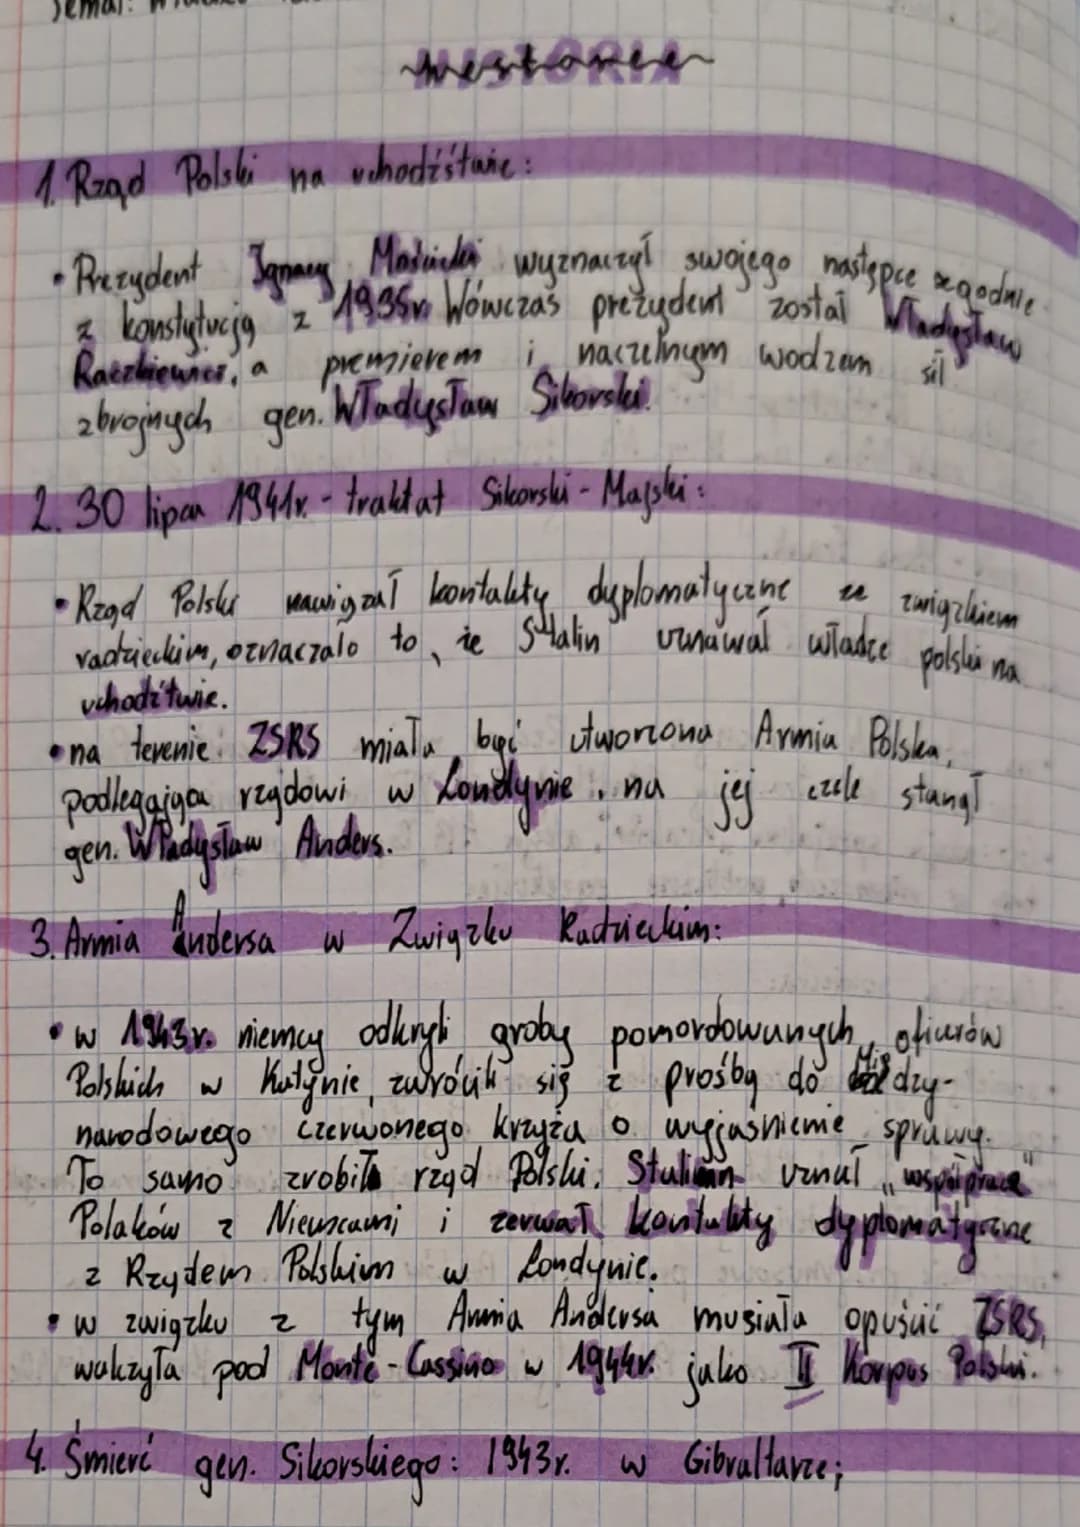 Temat:
HISTORIA
1. Rząd Polski na uchodźśtwie:
• Prezydent Ignacy Mościcki wyznaczył swojego następce zgodnie
z konstytucją z 1935r. Wówczas prezydent został Władysław
Raczkiewicz, a premierem i naczelnym wodzem sił
zbrojnych gen. Władysław Sikorski.
2. 30 lipca 1941r. - traktat Sikorski - Majski:
• Rząd Polski nawiązał kontakty dyplomatyczne ze związkiem
radzieckim, oznaczało to, że Stalin uznawał władze polski na
uchodźtwie.
• na terenie ZSRS miała być utworzona Armia Polska,
podlegająca rządowi w Londynie, na jej czele stanął
gen. Władysław Anders.
3. Armia Andersa w Związku Radzieckim:
• w 1943r. niemcy odkryli groby pomordowanych oficerów
Polskich w Katynie, zwrócili się z prośbą do Między-
narodowego czerwonego krzyża o wyjaśnienie sprawy.
To samo zrobił rząd Polski. Stalin uznał "współprace"
Polaków z Niemcami i zerwał kontakty dyplomatyczne
z Rządem Polskim w Londynie.
• w związku z tym Armia Andersa musiała opuścić ZSRS,
walczyła pod Monte-Cassino w 1944r. jako II Korpus Polski.
4. Śmierć gen. Sikorskiego: 1943r. w Gibraltarze;